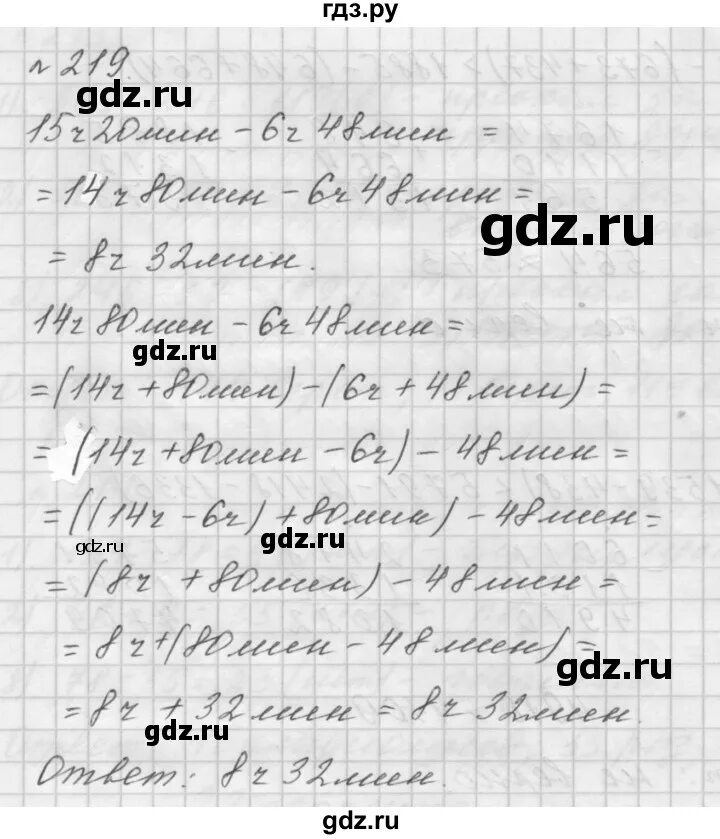 гдз.ру
№ 219.
gdz.ru
15ч20мин − 6ч 48мин =
= 14ч 80мин − 6ч 48мин =
gdz.ru
= 8ч 32мин.
14ч 80мин − 6ч 48мин =
gdz.ru
= (14ч + 80мин) − (6ч + 48мин) =
= (14ч + 80мин − 6ч) − 48мин =
= ((14ч − 6ч) + 80мин) − 48мин =
gdz.ru
gdz.ru
= (8ч + 80мин) − 48мин =
= 8ч + (80мин − 48мин) =
gdz.ru
= 8ч + 32мин = 8ч 32мин.
gdz.ru
Ответ: 8ч 32мин.
gdz.ru